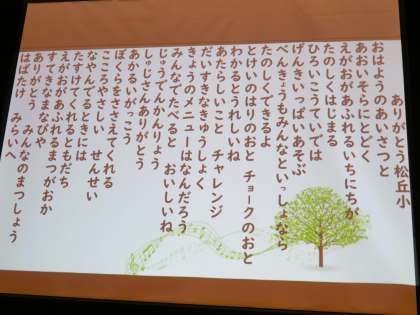 ありがとう松丘小
おはようのあいさつと
あおいそらにとどく
えがおがあふれるいちにちが
たのしくはじまる
ひろいこうていでは
げんきいっぱいあそぶ
べんきょうもみんなといっしょなら
たのしくできるよ
とけいのはりのおと チョークのおと
わかるとうれしいね
あたらしいこと チャレンジ
だいすきなきゅうしょく
きょうのメニューはなんだろう
みんなでたべると おいしいね
じゅうでんかんりょう
しゅじさんありがとう
あかるいがっこう
ぼくらをささえてくれる
こころやさしい せんせい
なやんでるときには
たすけてくれるともだち
えがおがあふれるまつがおか
すてきなまなびや
ありがとう みんなのまつしょう
はばたけ みらいへ